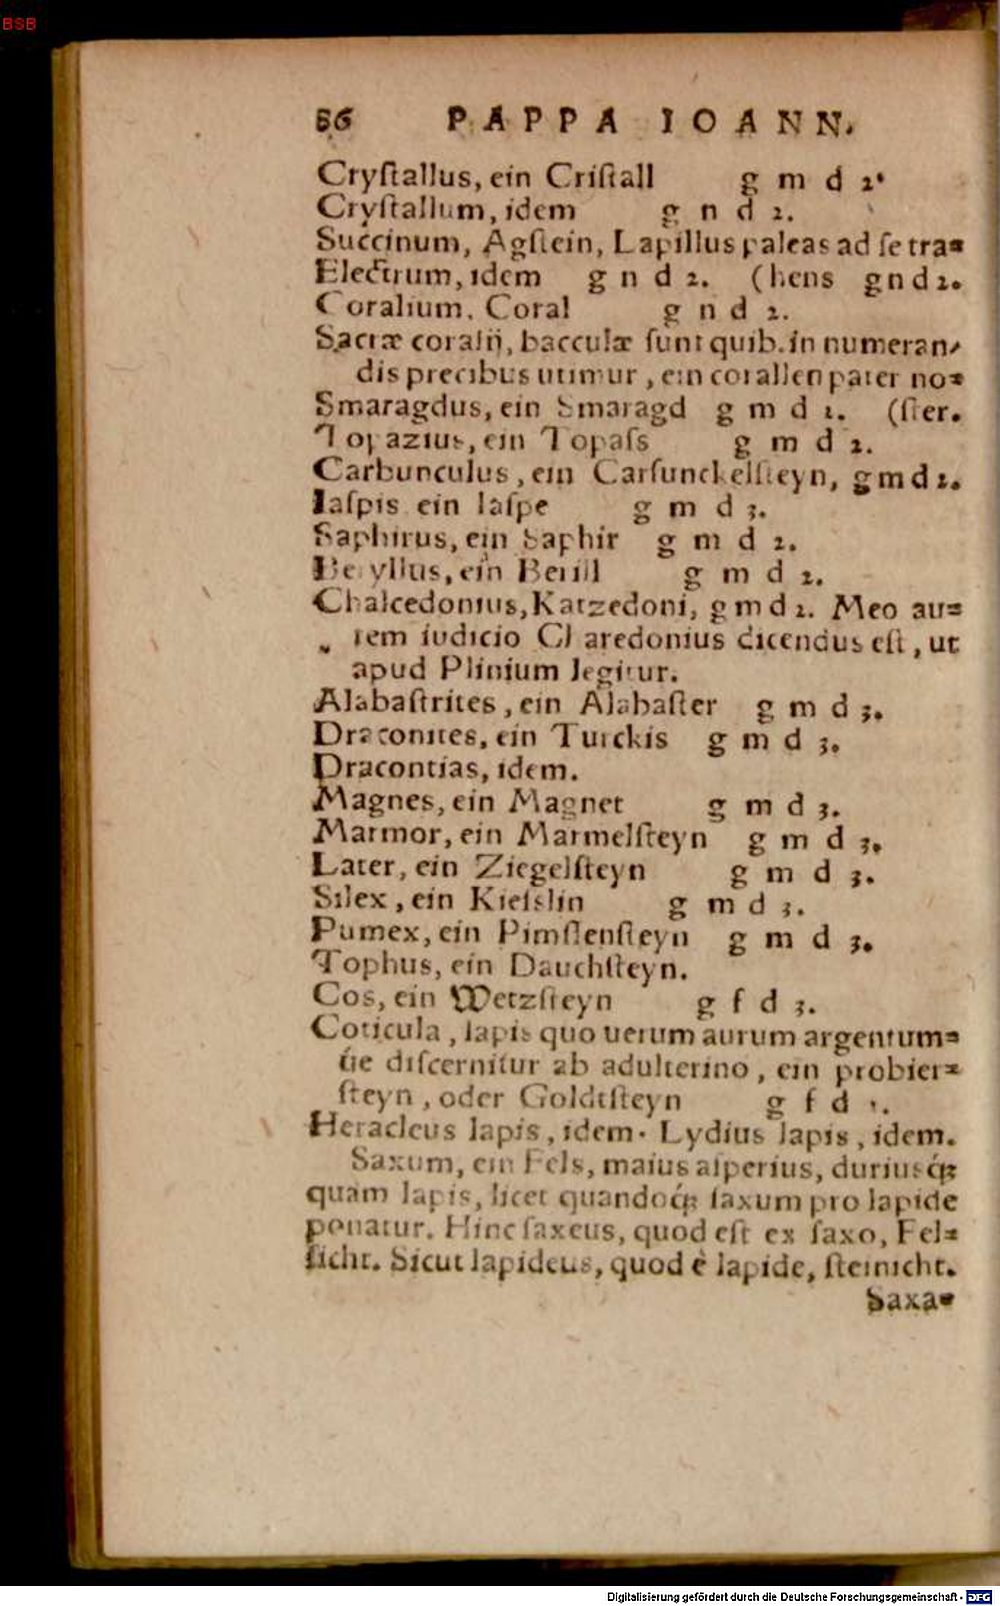 BSB
86 PAPPA IOANN.
Cryſtallus, ein Criſtall g m d 2.
Cryſtallum, idem g n d 2.
Succinum, Agſtein, Lapillus paleas ad ſe tra=
Electrum, idem g n d 2. (hens g n d 2.
Coralium, Coral g n d 2.
Sacræ coralij, bacculæ ſunt quib. in numeran-
dis precibus utimur, ein corallen pater no=
Smaragdus, ein Smaragd g m d 2. (ſter.
Topazius, ein Topaſs g m d 2.
Carbunculus, ein Carfunckelſteyn, g m d 2.
Iaſpis ein Iaſpe g m d 3.
Saphirus, ein Saphir g m d 2.
Beryllus, ein Berill g m d 2.
Chalcedonius, Katzedoni, g m d 2. Meo au=
tem iudicio Charedonius dicendus eſt, ut
apud Plinium legitur.
Alabaſtrites, ein Alabaſter g m d 3.
Draconites, ein Turckis g m d 3.
Dracontias, idem.
Magnes, ein Magnet g m d 3.
Marmor, ein Marmelſteyn g m d 3.
Later, ein Ziegelſteyn g m d 3.
Silex, ein Kieſslin g m d 3.
Pumex, ein Pimſſenſteyn g m d 3.
Tophus, ein Dauchſteyn.
Cos, ein Wetzſteyn g f d 3.
Coticula, lapis quo uerum aurum argentum=
úe diſcernitur ab adulterino, ein probier=
ſteyn, oder Goldtſteyn g f d
Heracleus lapis, idem. Lydius lapis, idem.
Saxum, ein Fels, maius aſperius, duriusq́;
quam lapis, licet quandoq́; ſaxum pro lapide
ponatur. Hinc ſaxeus, quod eſt ex ſaxo, Fel=
ſicht. Sicut lapideus, quod è lapide, ſteinicht.
Saxa=
Digitalisierung gefördert durch die Deutsche Forschungsgemeinschaft - DFG